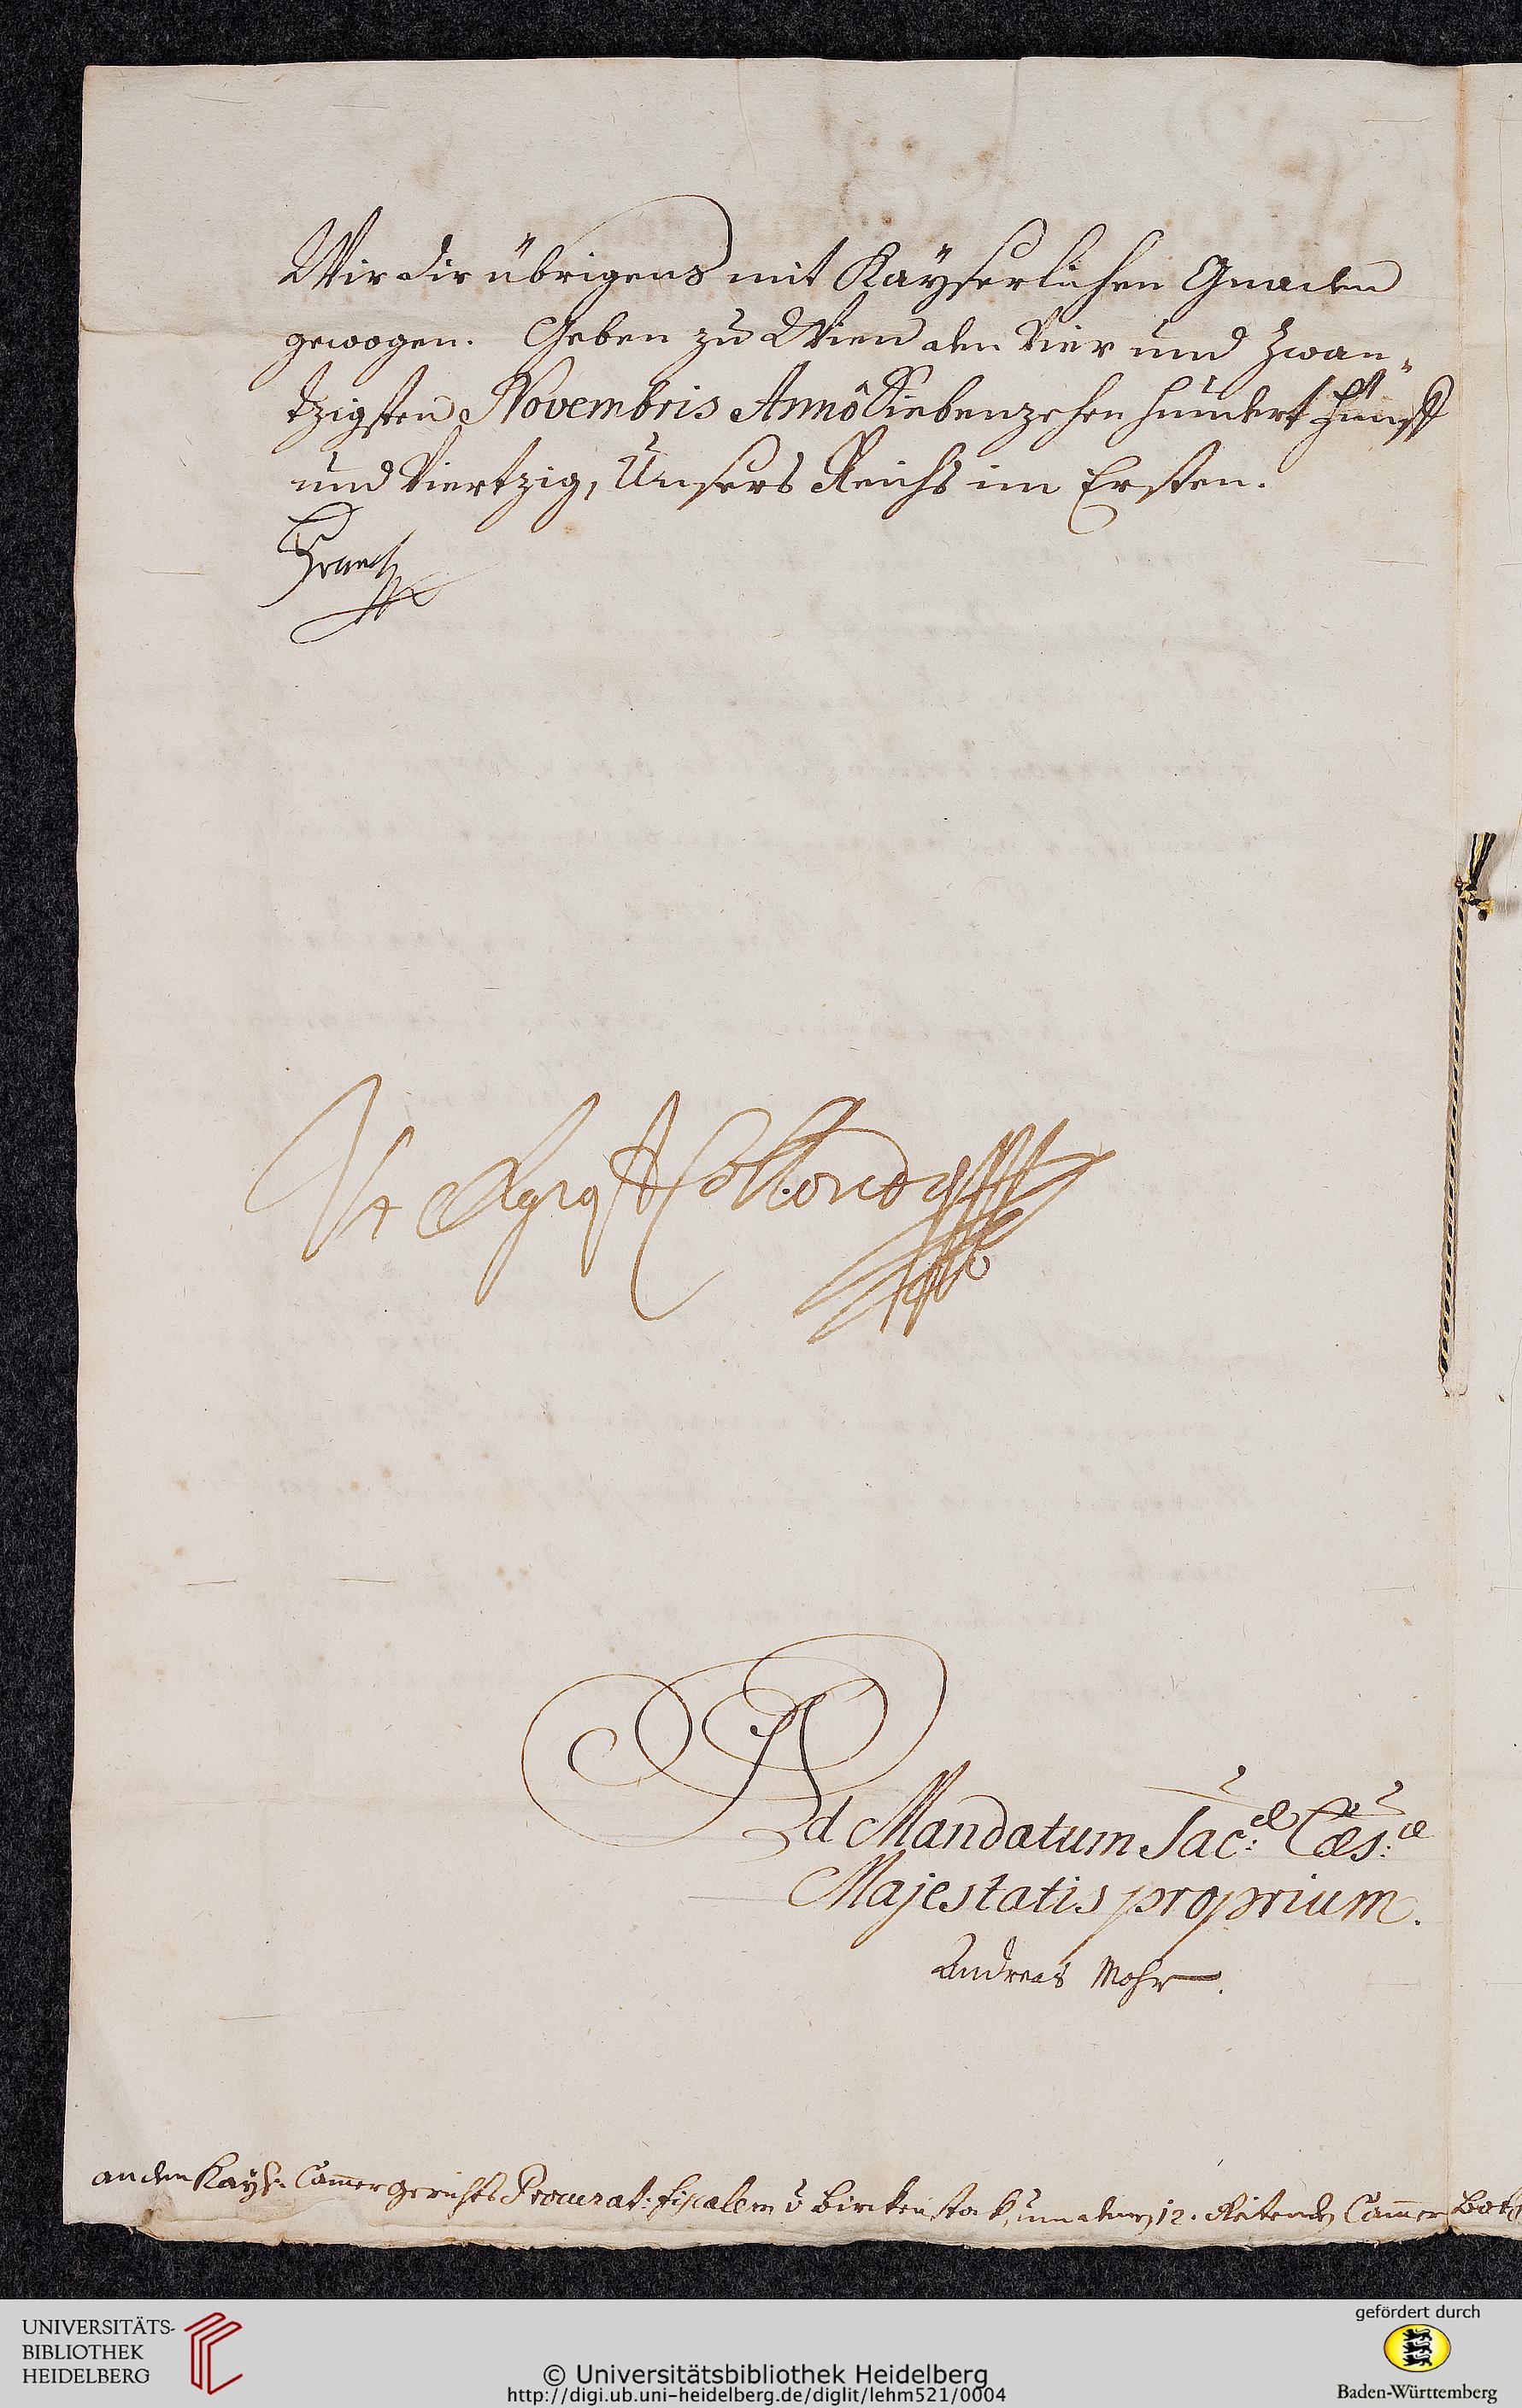 Wir dir übrigens mit Kayserlichen Gnaden
gewogen. Geben zu Wien den Vier und Zwan-
tzigsten Novembris Annô Siebenzehen hundert fünff
und Viertzig, Unsers Reichs im Ersten.
Frantz
Vt Colloredo
Ad Mandatum Sac: æ Cæs: æ
Majestatis proprium.
Andreas Mohr.
an den Kays. Cammergerichts Procurat: fiscalem v Birckenstock, 12. Reitende Cammer Bott
UNIVERSITÄTS-
BIBLIOTHEK
HEIDELBERG
© Universitätsbibliothek Heidelberg
http://digi.ub.uni-heidelberg.de/diglit/lehm521/0004
gefördert durch
Baden-Württemberg